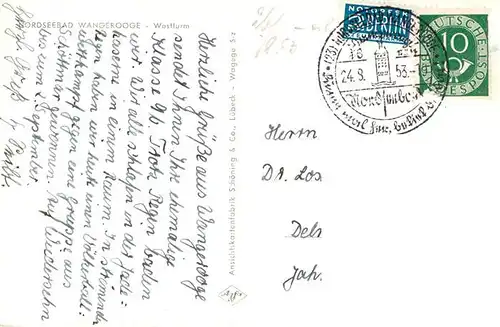 NORDSEEBAD WANGEROOGE - Westturm
Herzliche Grüße aus Wangerooge
sendet Ihnen Ihre ehemalige
Klasse 9b. Trotz Regen baden
wir. Wir alle schlafen in der Jade-
kaserne in einem Raum. In strömendem
Regen haben wir heute einen Völkerball-
wettkampf gegen eine Gruppe aus
gewonnen. Auf Wiedersehn
am 2. September.
Ansichtskartenfabrik Schöning & Co., Lübeck - Wagoge S
Agfa
NOTOPFER
2 BERLIN
STEUERMARKE
DEUTSCHE
BUNDESPOST
10
24.8.53
Nordseebad
Herrn
Dr. Los
Dels
Jah.